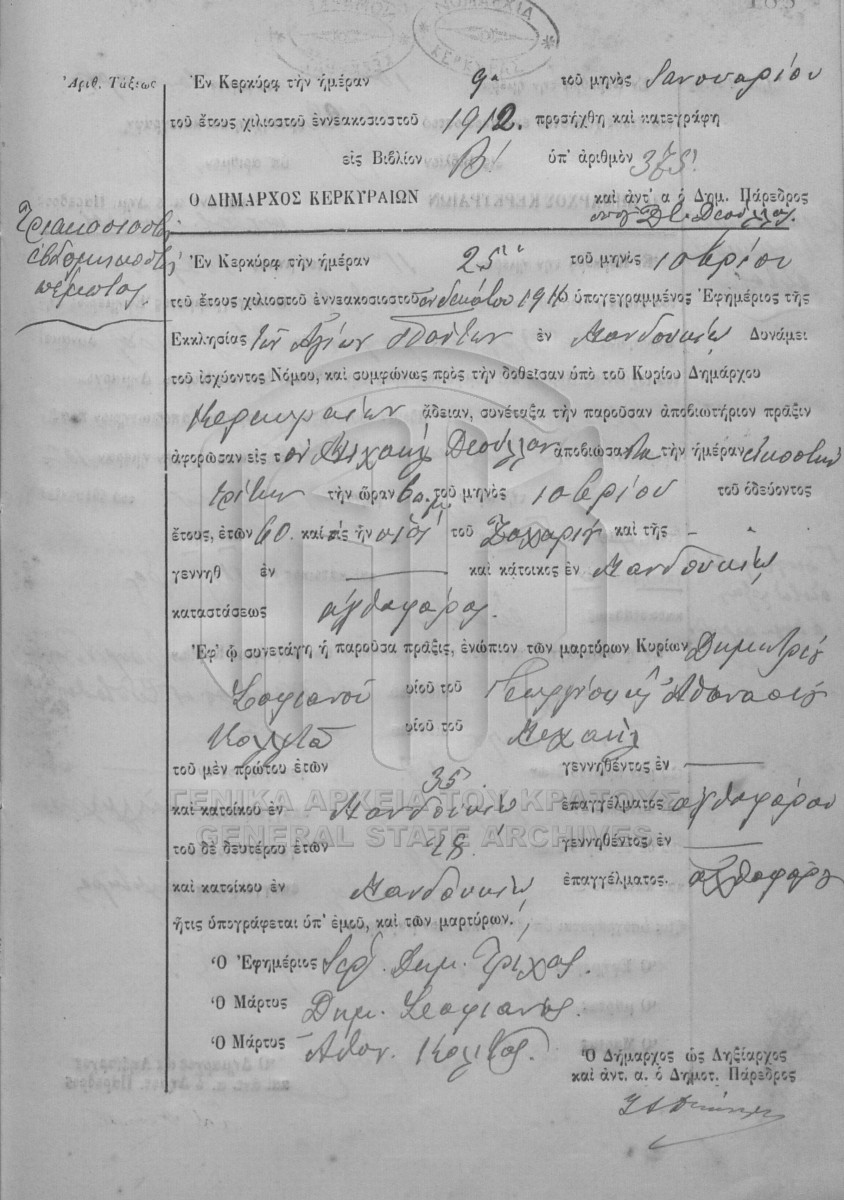 ΝΟΜΑΡΧΙΑ
ΚΕΡΚΥΡΑΣ
Ἀριθ. Τάξεως Ἐν Κερκύρᾳ τὴν ἡμέραν 9ῃ τοῦ μηνὸς Ιανουαρίου
τοῦ ἔτους χιλιοστοῦ ἐννεακοσιοστοῦ 1912. προσήχθη καὶ κατεγράφη
εἰς Βιβλίον Β' ὑπ' ἀριθμὸν 375
Ο ΔΗΜΑΡΧΟΣ ΚΕΡΚΥΡΑΙΩΝ καὶ ἀντ' α ὁ Δημ. Πάρεδρος
Τριακοσιοστὴ
ἑβδομηκοστὴ
πέμπτη.
Ἐν Κερκύρᾳ τὴν ἡμέραν 25 τοῦ μηνὸς 10βρίου
τοῦ ἔτους χιλιοστοῦ ἐννεακοσιοστοῦ ἑνδεκάτου 1911 ὁ ὑπογεγραμμένος Ἐφημέριος τῆς
Ἐκκλησίας τῶν Ἁγίων Πάντων ἐν Μανδουκίῳ Δυνάμει
τοῦ ἰσχύοντος Νόμου, καὶ συμφώνως πρὸς τὴν δοθεῖσαν ὑπὸ τοῦ Κυρίου Δημάρχου
Κερκυραίων ἄδειαν, συνέταξα τὴν παροῦσαν ἀποβιωτήριον πρᾶξιν
ἀφορῶσαν εἰς τὸν Μιχαὴλ ἀποβιώσαντα τὴν ἡμέραν εἰκοστὴν
τρίτην τὴν ὥραν 6 μμ τοῦ μηνὸς 10βρίου τοῦ ὁδεύοντος
ἔτους, ἐτῶν 60. καὶ τίς ἦν υἱὸς τοῦ Ζαχαρίου καὶ τῆς -
γεννηθ ἐν — καὶ κάτοικος ἐν Μανδουκίῳ
καταστάσεως ἀχθοφόρος.
Ἐφ' ᾧ συνετάγη ἡ παροῦσα πρᾶξις, ἐνώπιον τῶν μαρτύρων Κυρίων Δημητρίου
Σοφιανοῦ υἱοῦ τοῦ Γεωργίου καὶ Ἀθανασίου
Κολυτᾶ υἱοῦ τοῦ Μιχαὴλ
τοῦ μὲν πρώτου ἐτῶν 35 γεννηθέντος ἐν —
καὶ κατοίκου ἐν Μανδουκίῳ ἐπαγγέλματος ἀχθοφόρου
τοῦ δὲ δευτέρου ἐτῶν 28 γεννηθέντος ἐν —
καὶ κατοίκου ἐν Μανδουκίῳ ἐπαγγέλματος. ἀχθοφόρου
ἥτις ὑπογράφεται ὑπ' ἐμοῦ, καὶ τῶν μαρτύρων.
Ὁ Ἐφημέριος Ἱερ. Δημ. Τρίχας.
Ὁ Μάρτυς Δημ. Σοφιανός.
Ὁ Μάρτυς Ἀθαν. Κολυτᾶς.
Ὁ Δήμαρχος ὡς Ληξίαρχος
καὶ ἀντ. α. ὁ Δημοτ. Πάρεδρος
ΓΕΝΙΚΑ ΑΡΧΕΙΑ ΤΟΥ ΚΡΑΤΟΥΣ
GENERAL STATE ARCHIVES